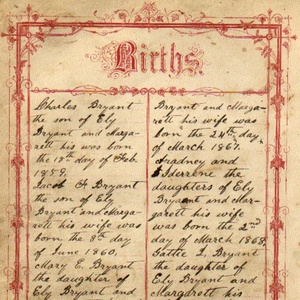 Births.
Charles Bryant
the son of Ely
Bryant and Marga-
rett his was born
the 19th day of Feb.
1859.
Jacob F Bryant
the son of Ely
Bryant and Marga-
rett his wife was
born the 8th day
of June 1860.
Mary E. Bryant
the daughter of
Ely Bryant and
Bryant and Marga-
rett his wife was
born the 24th day
of March 1867.
Fradney and
the
daughters of Ely
Bryant and Mar-
garett his wife
was born the 2nd
day of March 1868.
Lattie L. Bryant
the daughter of
Ely Bryant and
Margarett his